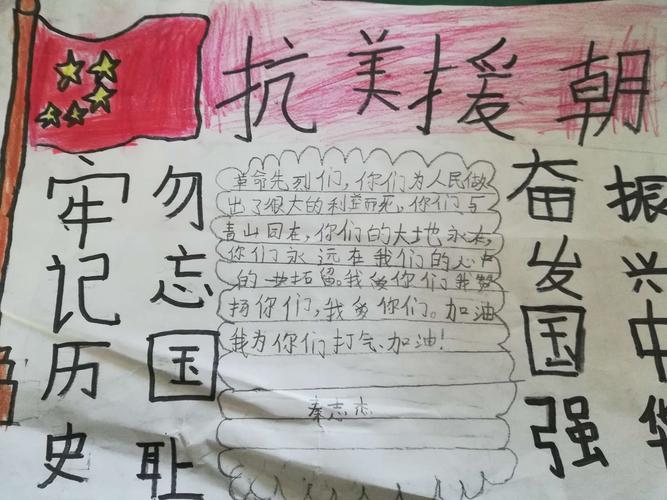 抗美援朝
牢记历史
勿忘国耻
革命先列们,你们为人民做
出了很大的利益而死。你们与
青山回在,你们的大地永在,
你们永远在我们的心
的
留。我爱你们我赞
扬你们,我爱你们。加油
我为你们打气、加油!
秦志
奋发国强
振兴中华